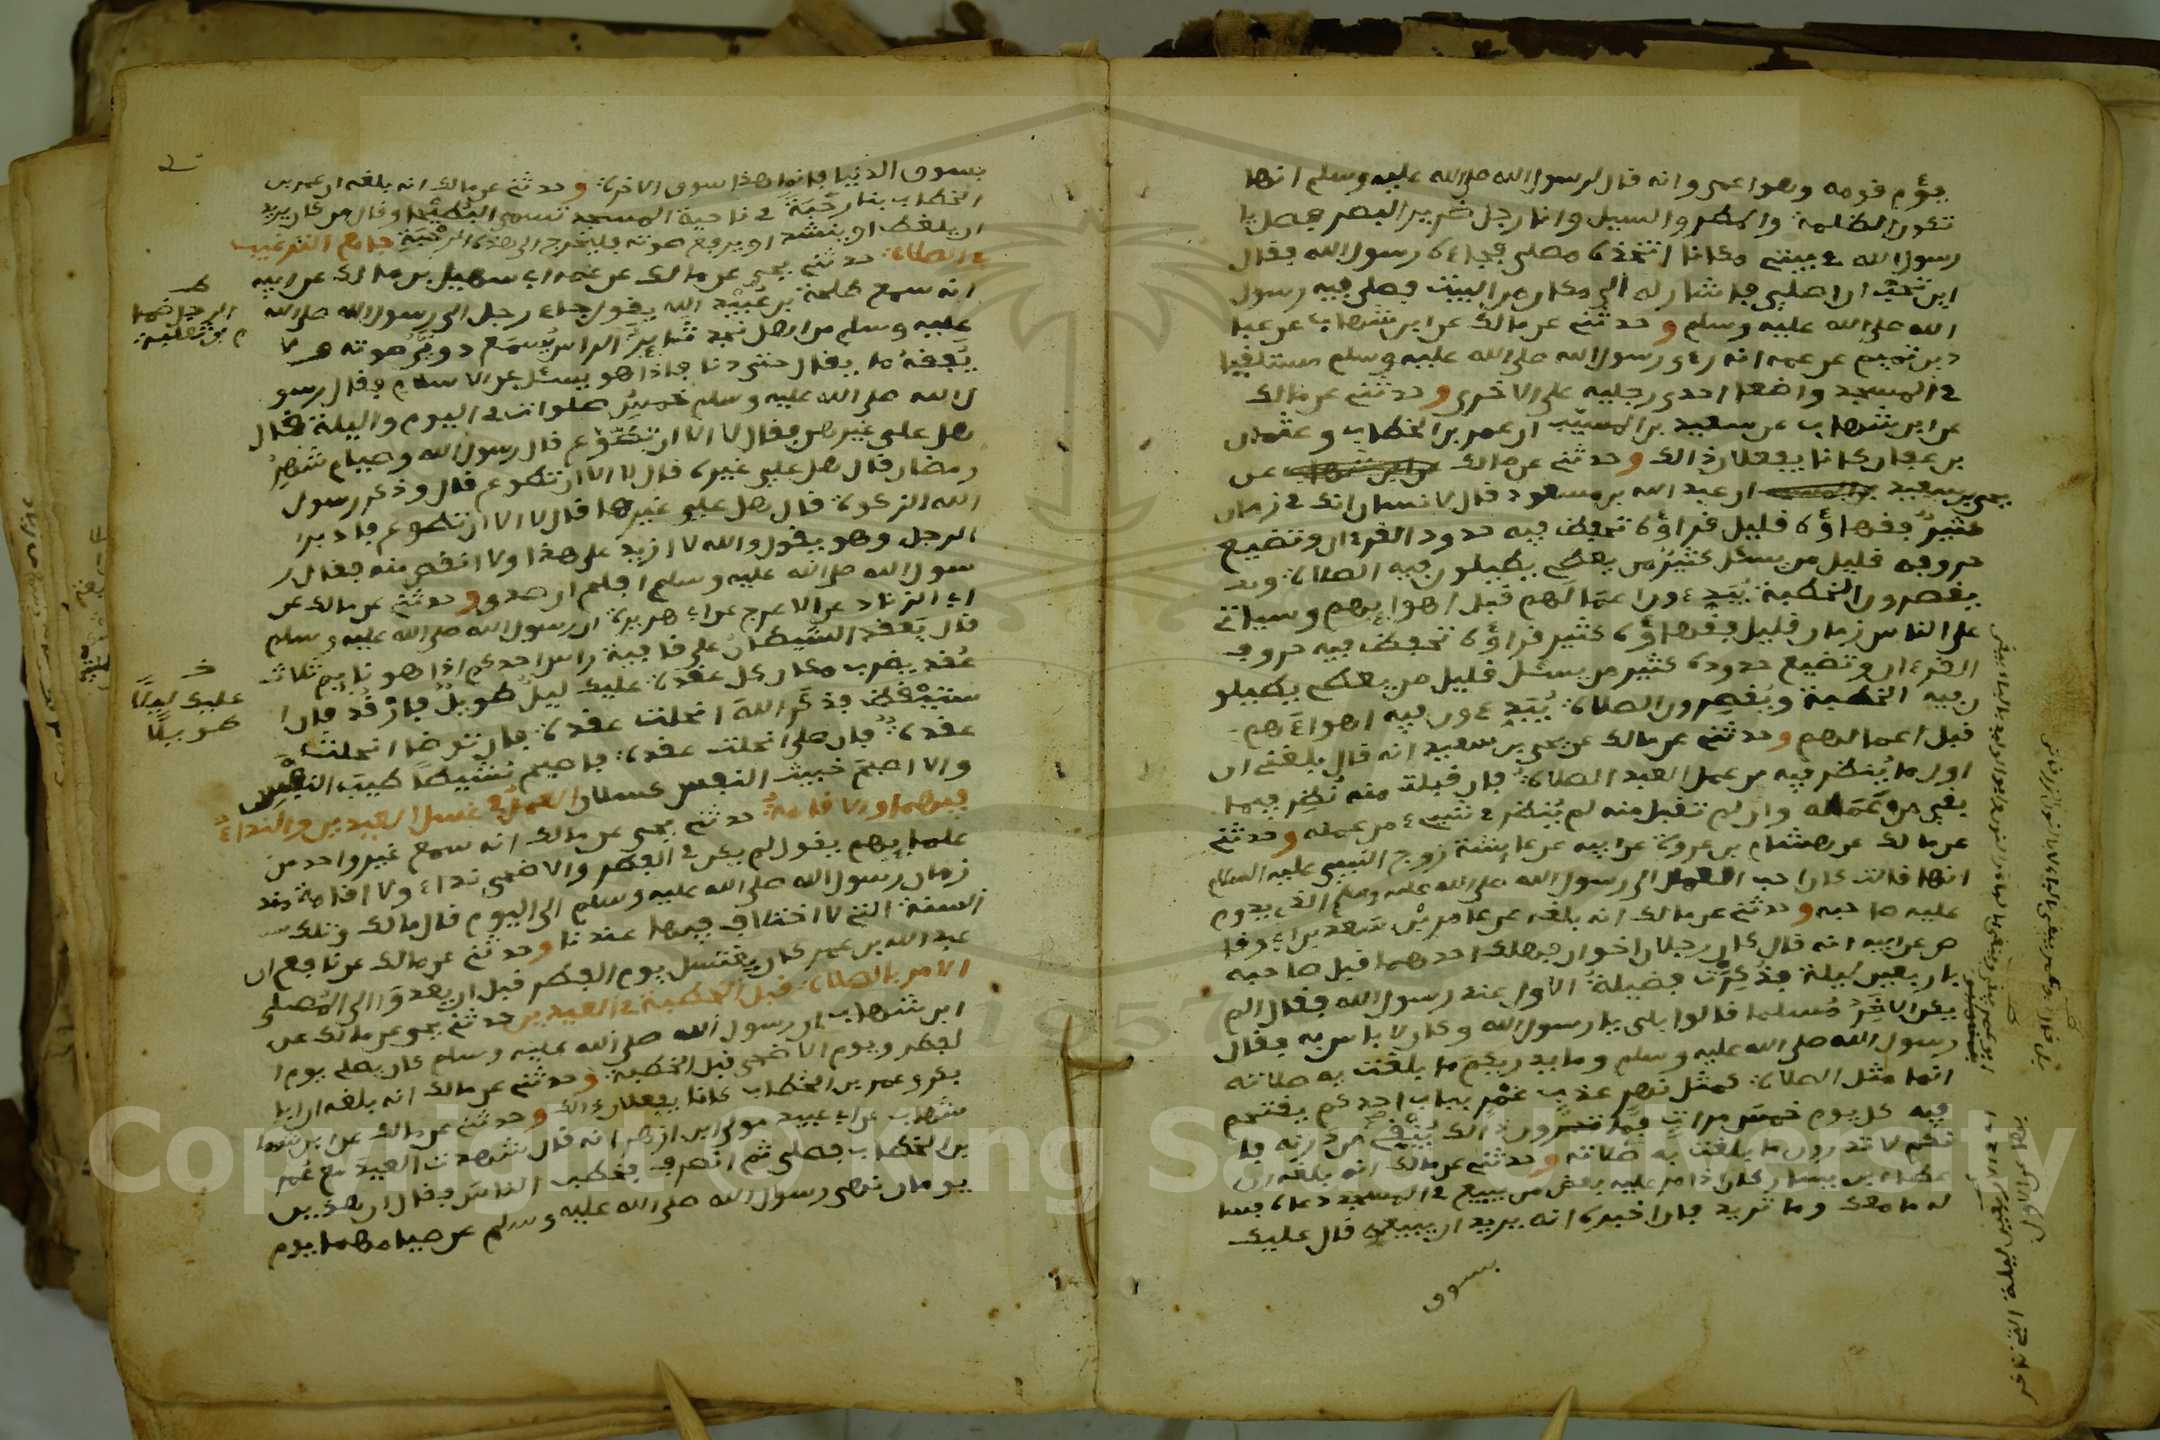 يؤم قومه وهو اعمى وانه قال لرسول الله صلى الله عليه وسلم انها
تكون الظلمة والمطر والسيل وانا رجل ضرير البصر فصل يا
رسول الله في بيتي مكانا اتخذه مصلى فجاءه رسول الله فقال
اين تحب ان اصلي فاشار له الى مكان من البيت فصلى فيه رسول
الله صلى الله عليه وسلم وحدثني عن مالك عن ابن شهاب عن عبا
د بن تميم عن عمه انه رءى رسول الله صلى الله عليه وسلم مستلقيا
في المسجد واضعا احدى رجليه على الاخرى وحدثني عن مالك
عن ابن شهاب عن سعيد بن المسيب ان عمر بن الخطاب وعثمان
بن عفان كانا يفعلان ذالك وحدثني عن مالك عن ابن شهاب عن
يحيى بن سعيد ان عبد الله بن مسعود قال لانسان انك في زمان
كثير فقهاؤه قليل قراؤه تحفظ فيه حدود القرءان وتضيع
حروفه قليل من يسئل كثير من يعطي يطيلون فيه الصلاة و
يقصرون الخطبة يبدءون اعمالهم قبل اهوايهم وسياتي
على الناس زمان قليل فقهاؤه كثير قراؤه تحفظ فيه حروف
القرءان وتضيع حدوده كثير من يسئل قليل من يعطي يطيلو
ن فيه الخطبة ويقصرون الصلاة يبدءون فيه اهواءهم
قبل اعمالهم وحدثني عن مالك عن يحيى بن سعيد انه قال بلغني ان
اول ما ينظر فيه من عمل العبد الصلاة فان قبلت منه نظر فيما
بقي من عمله وان لم تقبل منه لم ينظر في شيء من عمله وحدثني
عن مالك عن هشام بن عروة عن ابيه عن عايشة زوج النبي عليه السلام
انها قالت كان احب العمل الى رسول الله صلى الله عليه وسلم الذي يدوم
عليه صاحبه وحدثني عن مالك انه بلغه عن عامر بن سعد بن ابي وقا
ص عن ابيه انه قال كان رجلان اخوان فهلك احدهما قبل صاحبه
باربعين ليلة فذكرت فضيلة الاول عند رسول الله فقال الم
يكن الاخر مسلما قالوا بلى يا رسول الله وكان لا باس به فقال
رسول الله صلى الله عليه وسلم وما يدريكم ما بلغت به صلاته
انما مثل الصلاة كمثل نهر عذب غمر بباب احدكم يقتحم
فيه كل يوم خمس مرات فما ترون ذالك يبقي من درنه فا
نكم لا تدرون ما بلغت به صلاته وحدثني عن مالك انه بلغه ان
عطاء بن يسار كان اذا مر عليه بعض من يبيع في المسجد دعاه فسا
له ما معك وما تريد فان اخبره انه يريد ان يبيعه قال عليك
بسوق
بسوق الدنيا فانما هذا سوق الاخرة وحدثني عن مالك انه بلغه ان عمر بن
الخطاب بنا رحبة في ناحية المسجد تسمى البطيحا وقال من كان يريد
ان يلغط او ينشد او يرفع صوته فليخرج الى هذه الرحبة جامع الترغيب
في الصلاة حدثني يحيى عن مالك عن عمه ابي سهيل بن مالك عن ابيه
انه سمع طلحة بن عبيد الله يقول جاء رجل الى رسول الله صلى الله
عليه وسلم من اهل نجد ثاير الراس يسمع دوي صوته ولا
يفقه ما يقال حتى دنا فاذا هو يسئل عن الاسلام فقال رسو
ل الله صلى الله عليه وسلم خمس صلوات في اليوم والليلة قال
هل علي غيرهن فقال لا الا ان تطوع قال رسول الله وصيام شهر
رمضان قال هل علي غيره قال لا الا ان تطوع قال وذكر رسول
الله الزكوة قال هل علي غيرها قال لا الا ان تطوع فادبر
الرجل وهو يقول والله لا ازيد على هذا ولا انقص منه فقال ر
سول الله صلى الله عليه وسلم افلح ان صدق وحدثني عن مالك عن
ابي الزناد عن الاعرج عن ابي هريرة ان رسول الله صلى الله عليه وسلم
قال يعقد الشيطان على قافية راس احدكم اذا هو نايم ثلاث
عقد يضرب مكان كل عقدة عليك ليل طويل فارقد فان ا
ستيقظ فذكر الله انحلت عقدة فان توضا انحلت
عقدة فان صلى انحلت عقدة فاصبح نشيطا طيب النفس
والا اصبح خبيث النفس كسلان العمل في غسل العيدين والنداء
فيهما والاقامة حدثني يحيى عن مالك انه سمع غير واحد من
علمايهم يقول لم يكن في الفطر والاضحى نداء ولا اقامة منذ
زمان رسول الله صلى الله عليه وسلم الى اليوم قال مالك وتلك
السنة التي لا اختلاف فيها عندنا وحدثني عن مالك عن نافع ان
عبد الله بن عمر كان يغتسل يوم الفطر قبل ان يغدوا الى المصلى
الامر بالصلاة قبل الخطبة في العيدين حدثني يحيى عن مالك عن
ابن شهاب ان رسول الله صلى الله عليه وسلم كان يصلي يوم ا
لفطر ويوم الاضحى قبل الخطبة وحدثني عن مالك انه بلغه ان ابا
بكر وعمر بن الخطاب كانا يفعلان ذالك وحدثني عن مالك عن ابن
شهاب عن ابي عبيد مولى ابن ازهر انه قال شهدت العيد مع عمر
بن الخطاب فصلى ثم انصرف فخطب الناس فقال ان هذين
يومان نهى رسول الله صلى الله عليه وسلم عن صيامهما يوم
عليك ليلا
طويلا